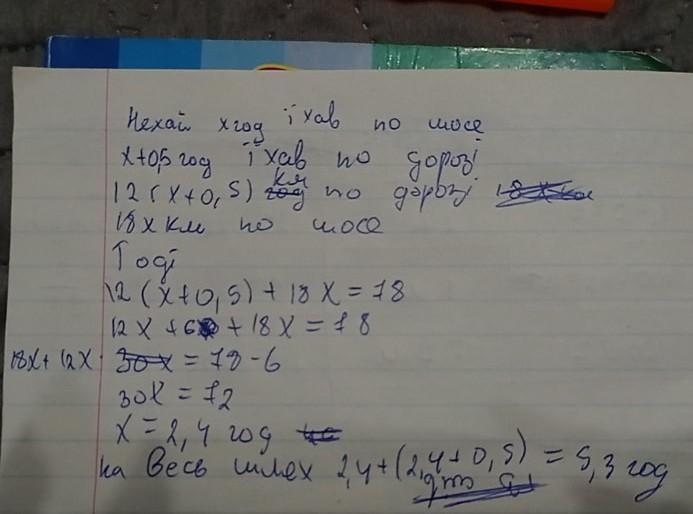 Нехай х год їхав по шосе
х+0,5 год їхав по дорозі
12(х+0,5) км по дорозі
18х км по шосе
Тоді
12(х+0,5)+18х=78
12х+6+18х=78
18х+12х=78-6
30х=72
х=2,4 год
на весь шлях 2,4+(2,4+0,5)=5,3 год